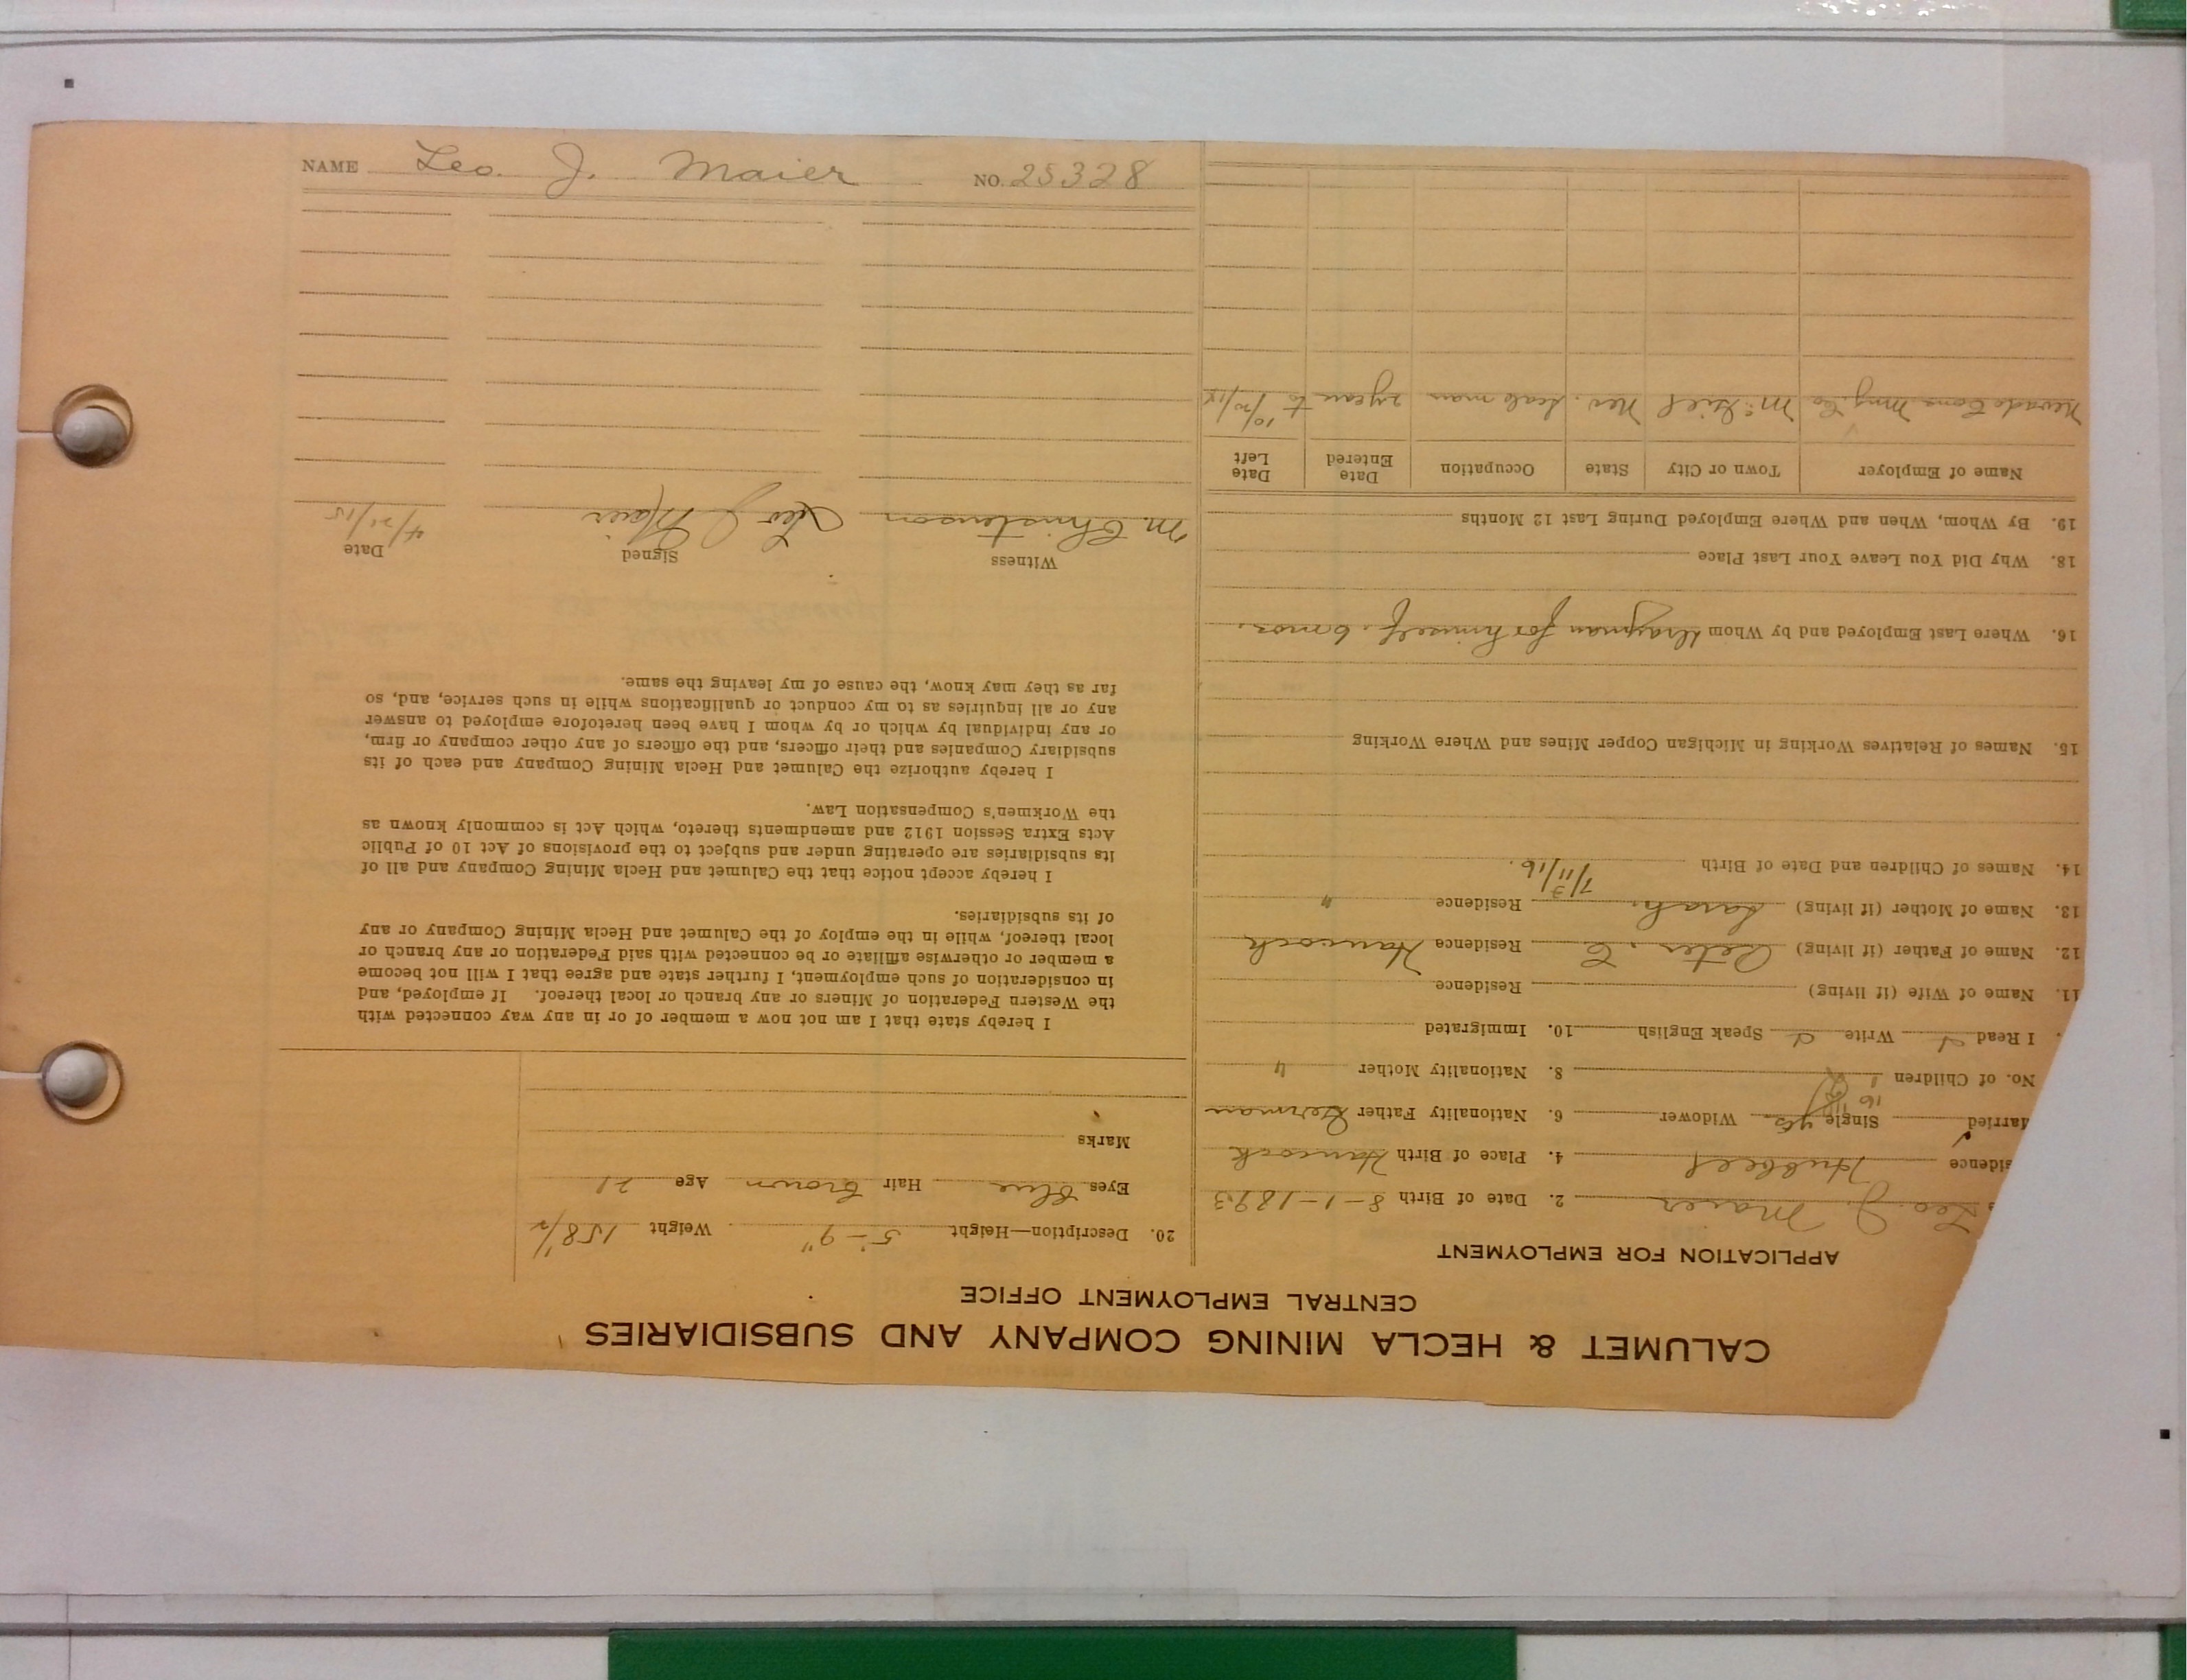 CALUMET & HECLA MINING COMPANY AND SUBSIDIARIES
CENTRAL EMPLOYMENT OFFICE
APPLICATION FOR EMPLOYMENT
Leo. J. Maier 2. Date of Birth 8-1-1893
sidence Hubbell 4. Place of Birth Hancock
arried Single yes Widower 6. Nationality Father German
No. of Children 8. Nationality Mother "
I Read Write Speak English 10. Immigrated
11. Name of Wife (if living) Residence
12. Name of Father (if living) Peter. Residence Hancock
13. Name of Mother (if living) Sarah. Residence "
7/11/16.
14. Names of Children and Date of Birth
15. Names of Relatives Working in Michigan Copper Mines and Where Working
16. Where Last Employed and by Whom Drayman for himself. 6 mos.
18. Why Did You Leave Your Last Place
19. By Whom, When and Where Employed During Last 12 Months
Name of Employer Town or City State Occupation Date Entered Date Left
Nevada Cons. Mng. Co McGill Nev. Scale man 2 years to
20. Description—Height 5'-9" Weight 158 1/2
Eyes Blue Hair Brown Age 21
Marks
I hereby state that I am not now a member of or in any way connected with
the Western Federation of Miners or any branch or local thereof. If employed, and
in consideration of such employment, I further state and agree that I will not become
a member or otherwise affiliate or be connected with said Federation or any branch or
local thereof, while in the employ of the Calumet and Hecla Mining Company or any
of its subsidiaries.
I hereby accept notice that the Calumet and Hecla Mining Company and all of
its subsidiaries are operating under and subject to the provisions of Act 10 of Public
Acts Extra Session 1912 and amendments thereto, which Act is commonly known as
the Workmen's Compensation Law.
I hereby authorize the Calumet and Hecla Mining Company and each of its
subsidiary Companies and their officers, and the officers of any other company or firm,
or any individual by which or by whom I have been heretofore employed to answer
any or all inquiries as to my conduct or qualifications while in such service, and, so
far as they may know, the cause of my leaving the same.
Witness Signed Date
M. Christenson Leo J Maier 4/21/15
NAME Leo. J. Maier NO. 25328